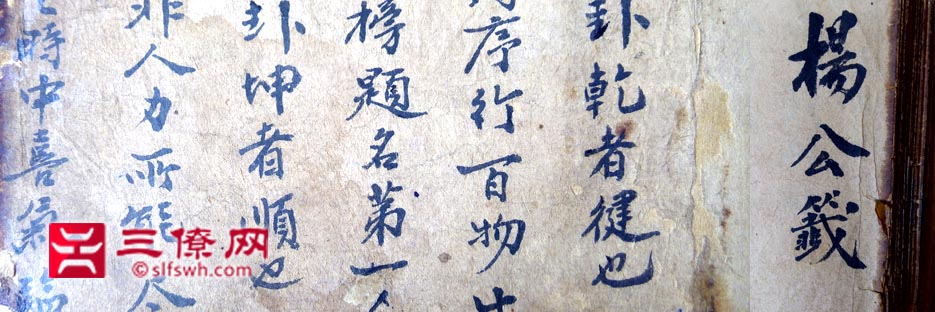 楊公籤
卦乾者健也
序行百物生
榜題名第一人
卦坤者順也
非人力所能尽
時中喜氣臨
三僚网
©slfswh.com